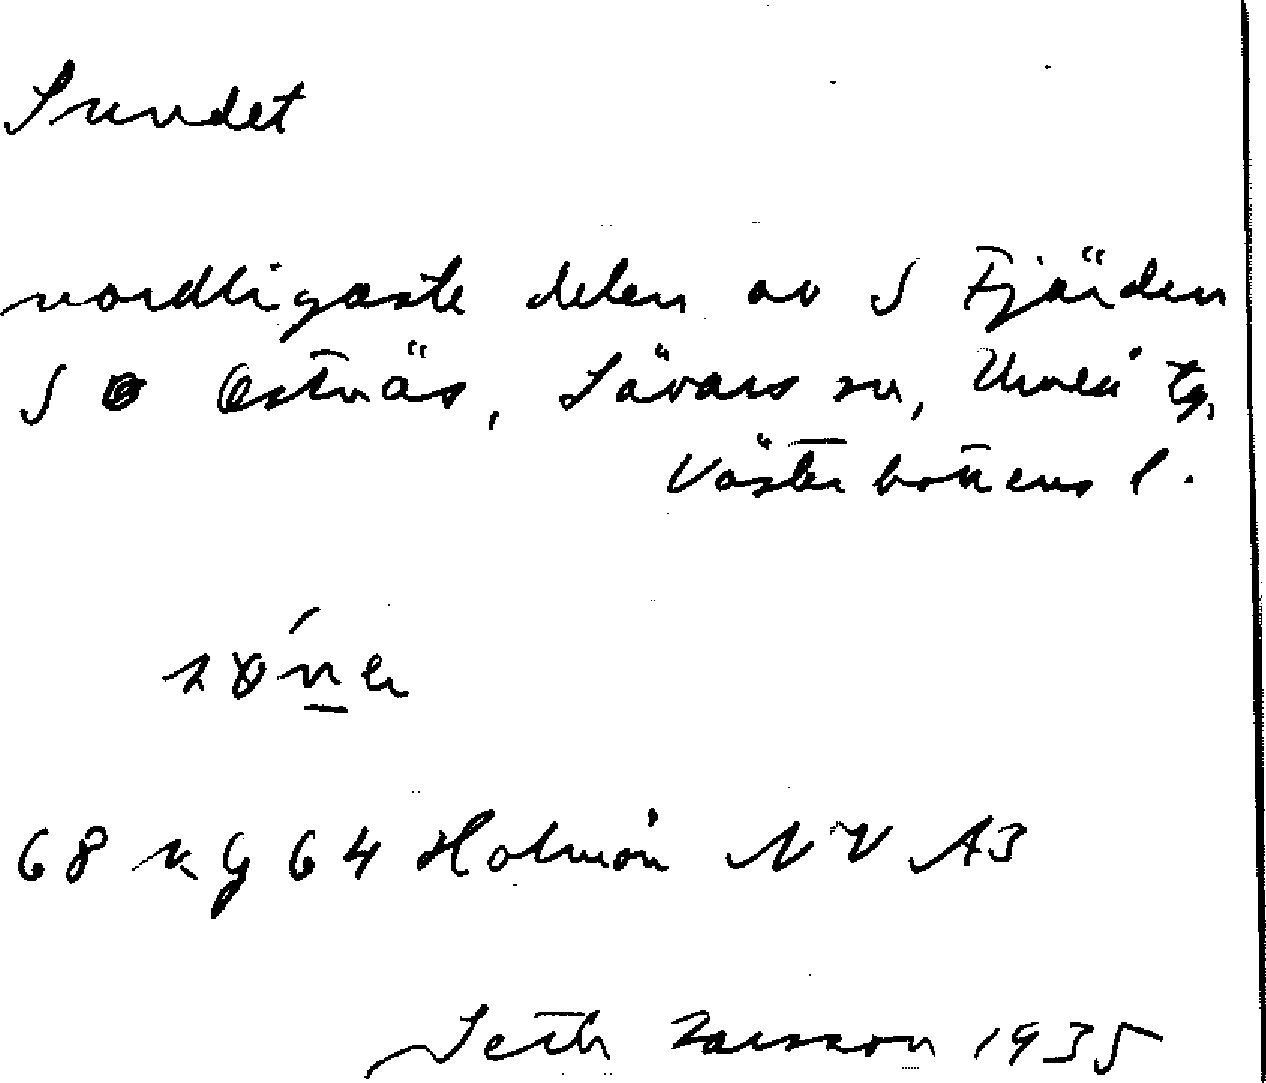 Sundet
nordligaste delen av S Fjärden
S Ostnäs, Sävars sn, Umeå tg,
Västerbottens l.
68 kg 64 Holmön NV A3
Seth Larsson 1935